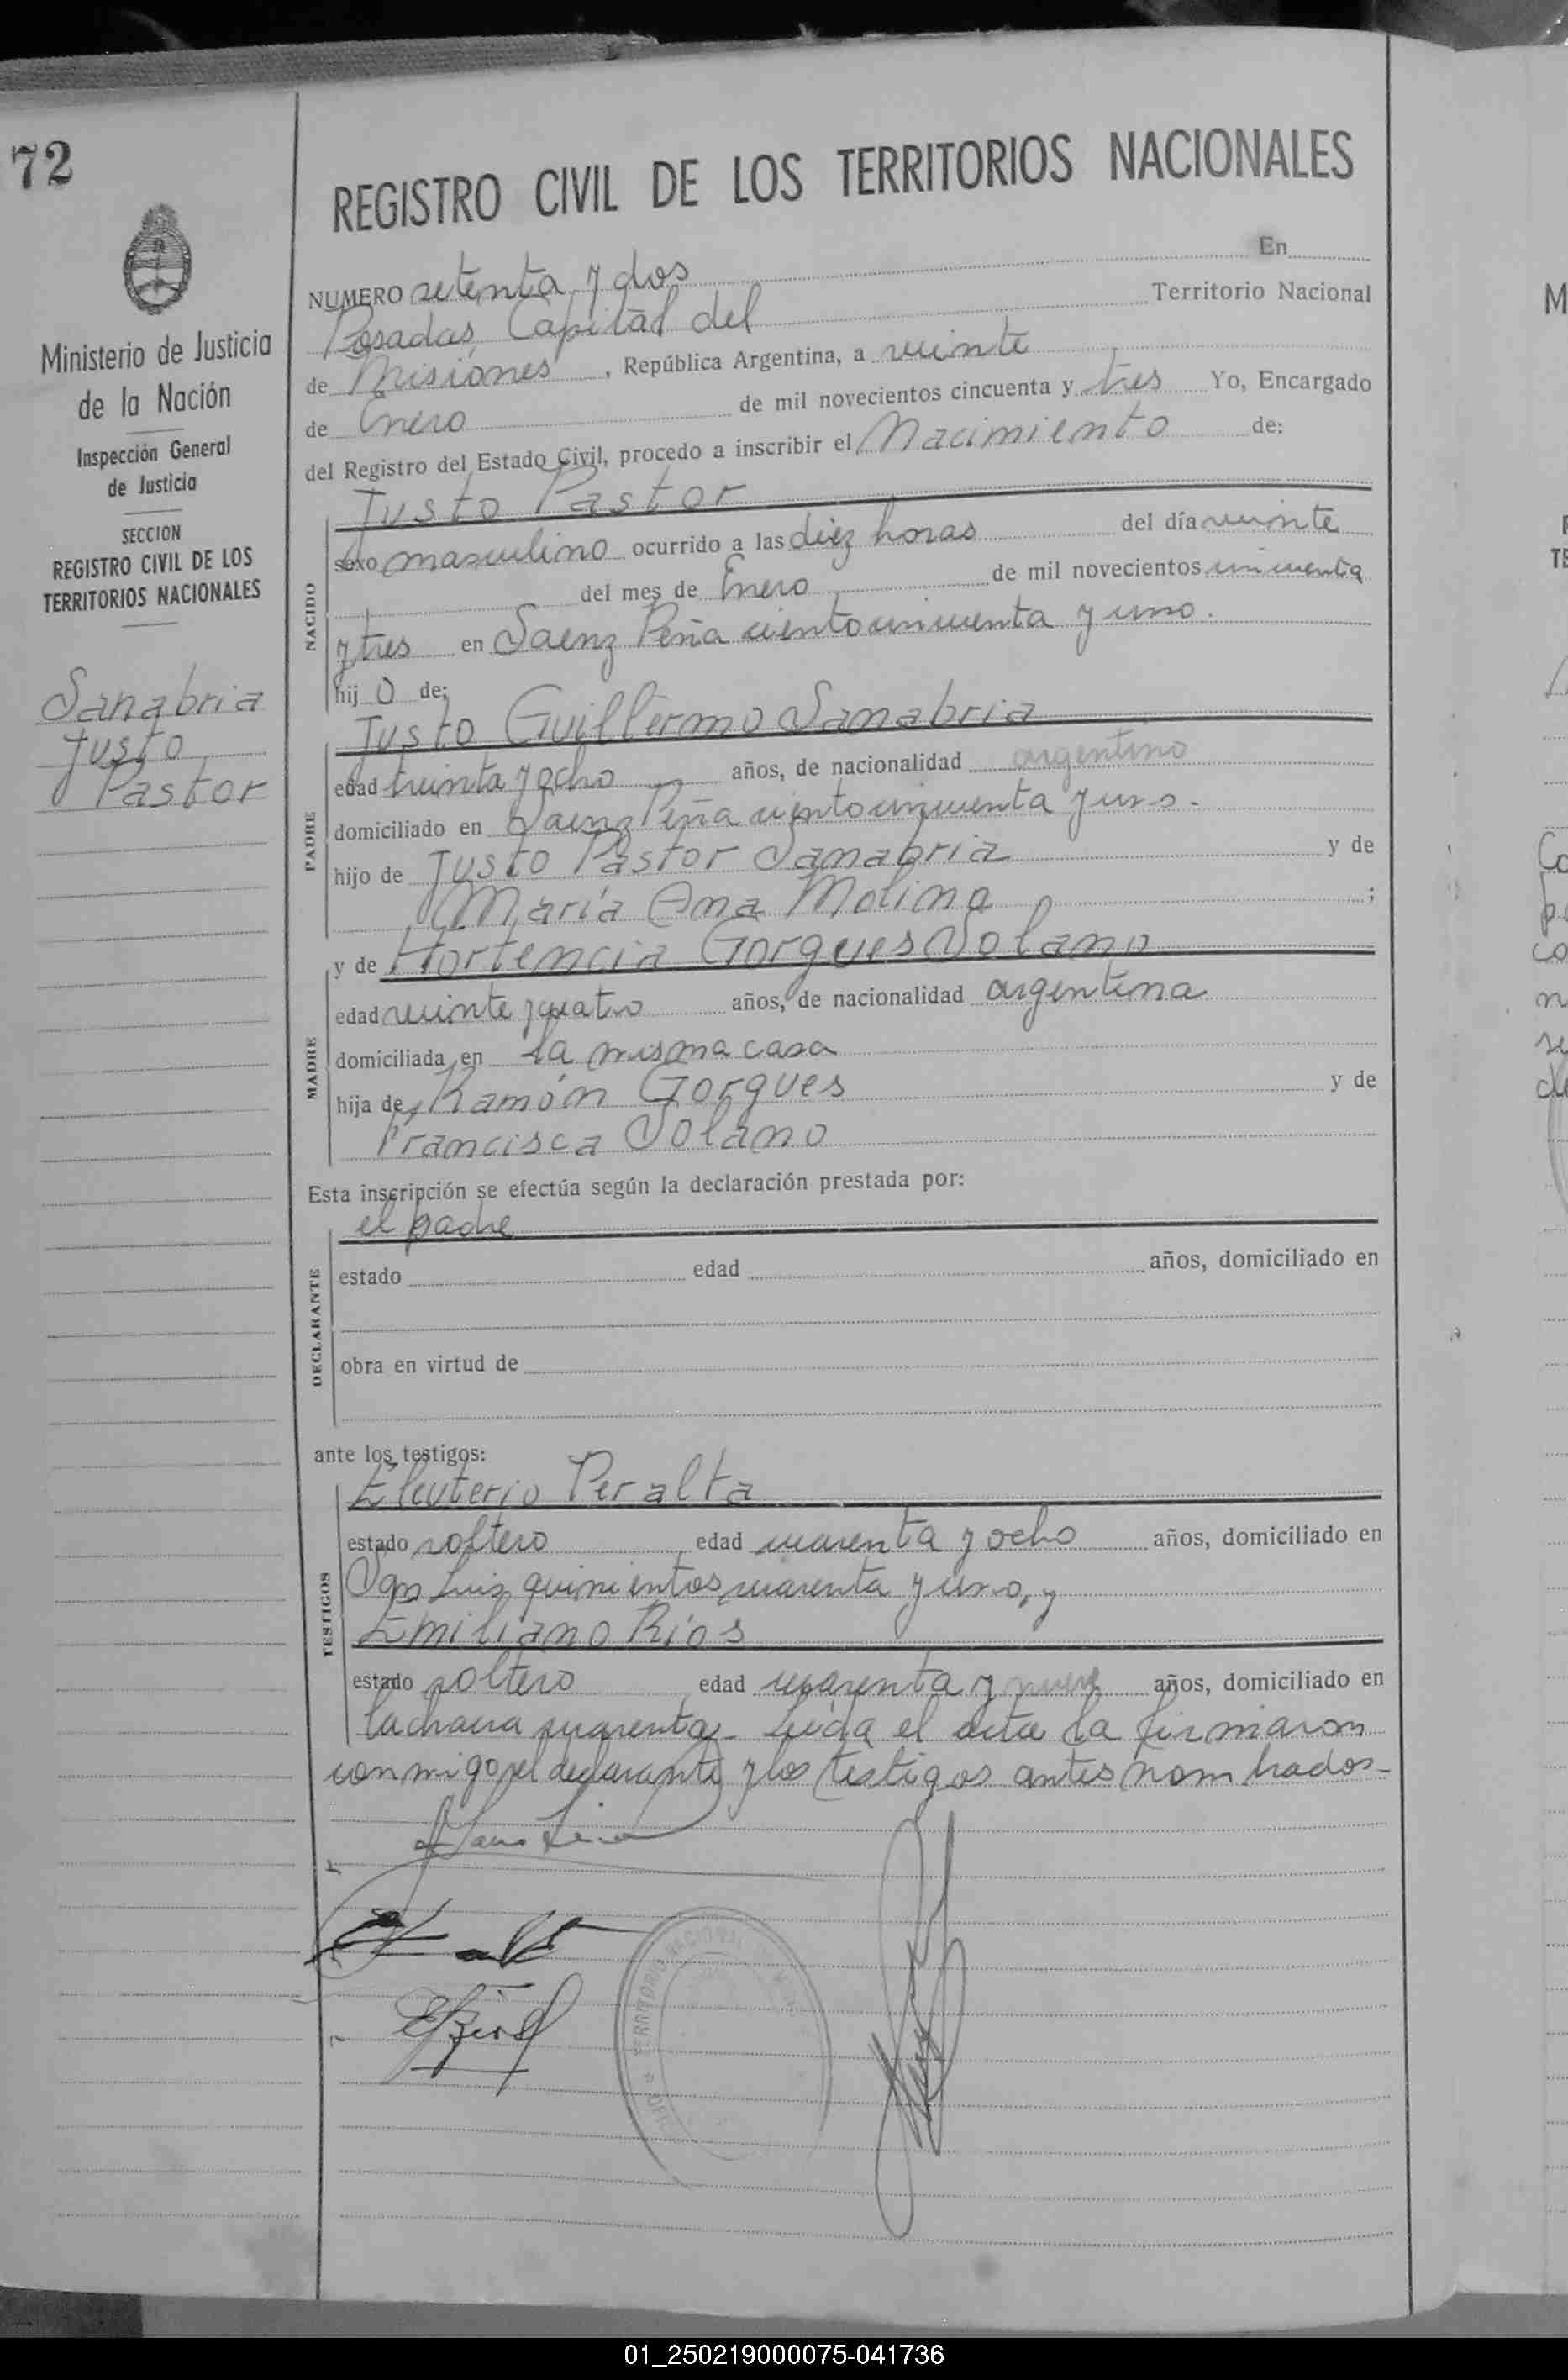 72
Ministerio de Justicia
de la Nación
Inspección General
de Justicia
SECCION
REGISTRO CIVIL DE LOS
TERRITORIOS NACIONALES
Sanabria
Justo
Pastor
REGISTRO CIVIL DE LOS TERRITORIOS NACIONALES
NUMERO setenta y dos En
Posadas, Capital del Territorio Nacional
de Misiones, República Argentina, a veinte
de Enero de mil novecientos cincuenta y tres Yo, Encargado
del Registro del Estado Civil, procedo a inscribir el Nacimiento de:
NACIDO
Justo Pastor
sexo masculino ocurrido a las diez horas del día veinte
del mes de Enero de mil novecientos cincuenta
y tres en Saenz Peña ciento cincuenta y uno.
hij o de:
PADRE
Justo Guillermo Sanabria
edad treinta y ocho años, de nacionalidad argentino
domiciliado en Saenz Peña ciento cincuenta y uno.
hijo de Justo Pastor Sanabria y de
María Ana Molina ;
MADRE
y de Hortencia Gorgues Solano
edad veinte y cuatro años, de nacionalidad argentina
domiciliada en la misma casa
hija de Ramón Gorgues y de
Francisca Solano
Esta inscripción se efectúa según la declaración prestada por:
DECLARANTE
el padre
estado edad años, domiciliado en
obra en virtud de
ante los testigos:
TESTIGOS
Eleuterio Peralta
estado soltero edad cuarenta y ocho años, domiciliado en
San Luis quinientos cuarenta y uno, y
Emiliano Ríos
estado soltero edad cuarenta y nueve años, domiciliado en
la chacra cuarenta - Leída el acta la firmaron
conmigo, el declarante y los testigos antes nombrados -
E Rios
TERRITORIO NACIONAL
01_250219000075-041736